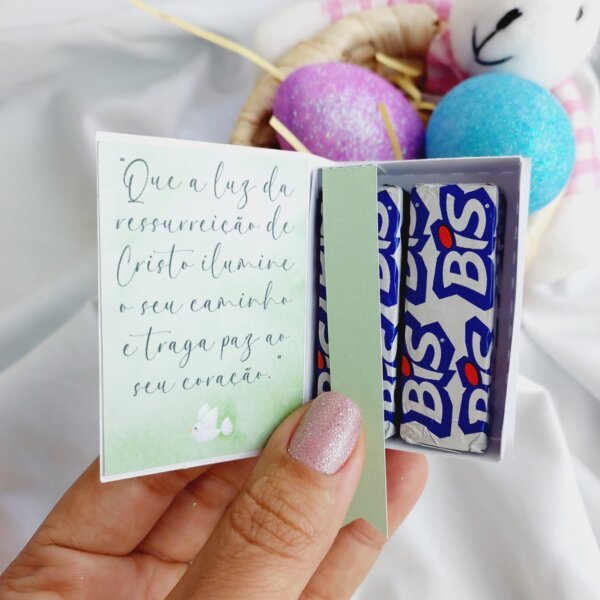 "Que a luz da
ressurreição de
Cristo ilumine
o seu caminho
e traga paz ao
seu coração."
BIS
BIS
BIS
BIS